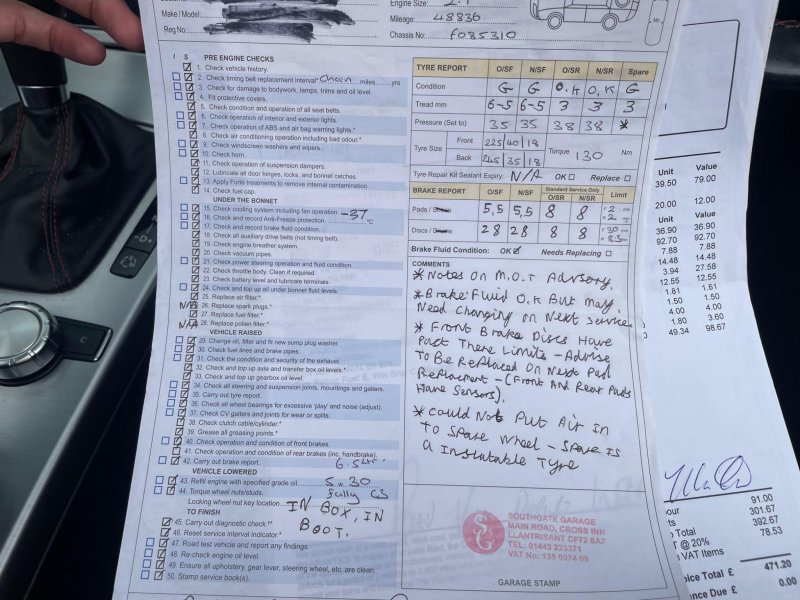 Engine Size: 2.1
Make / Model:
Mileage: 48836
Reg No
Chassis No: F085310
I S PRE ENGINE CHECKS
1. Check vehicle history.
2. Check timing belt replacement interval* Chain miles yrs
3. Check for damage to bodywork, lamps, trims and oil level.
4. Fit protective covers.
5. Check condition and operation of all seat belts.
6. Check operation of interior and exterior lights.
7. Check operation of ABS and air bag warning lights.*
8. Check air conditioning operation including bad odour.*
9. Check windscreen washers and wipers.
10. Check horn.
11. Check operation of suspension dampers.
12. Lubricate all door hinges, locks, and bonnet catches.
13. Apply Forté treatments to remove internal contamination.
14. Check fuel cap.
UNDER THE BONNET
15. Check cooling system including fan operation.
16. Check and record Anti-Freeze protection. -37 °C
17. Check and record brake fluid condition.
18. Check all auxiliary drive belts (not timing belt).
19. Check engine breather system.
20. Check vacuum pipes.
21. Check power steering operation and fluid condition.
22. Check throttle body. Clean if required.
23. Check battery level and lubricate terminals.
24. Check and top up all under bonnet fluid levels.
25. Replace air filter.*
N/A 26. Replace spark plugs.*
27. Replace fuel filter.*
N/A 28. Replace pollen filter.*
VEHICLE RAISED
29. Change oil, filter and fit new sump plug washer.
30. Check fuel lines and brake pipes.
31. Check the condition and security of the exhaust.
32. Check and top up axle and transfer box oil levels.*
33. Check and top up gearbox oil level.
34. Check all steering and suspension joints, mountings and gaiters.
35. Carry out tyre report.
36. Check all wheel bearings for excessive 'play' and noise (adjust).
37. Check CV gaiters and joints for wear or splits.
38. Check clutch cable/cylinder.*
39. Grease all greasing points.*
40. Check operation and condition of front brakes.
41. Check operation and condition of rear brakes (inc. handbrake).
42. Carry out brake report.
6.5 Ltr
VEHICLE LOWERED
43. Refill engine with specified grade oil 5w30
44. Torque wheel nuts/studs. Fully C3
Locking wheel nut key location IN BOX, IN
BOOT.
TO FINISH
45. Carry out diagnostic check.**
46. Reset service interval indicator.*
47. Road test vehicle and report any findings.
48. Re-check engine oil level.
49. Ensure all upholstery, gear lever, steering wheel, etc. are clean.
50. Stamp service book(s).
TYRE REPORT O/SF N/SF O/SR N/SR Spare
Condition G G O.K O.K G
Tread mm 6-5 6-5 3 3 3
Pressure (Set to) 35 35 38 38 *
Tyre Size Front 225 40 18 Torque 130 Nm
Back 245 35 18
Tyre Repair Kit Sealant Expiry N/A OK Replace
BRAKE REPORT O/SF N/SF Standard Service Only O/SR N/SR Limit
Pads / Shoes 5,5 5,5 8 8 F 2 mm R 2 mm
Discs / Drums 28 28 8 8 F 30 mm R 8.5 mm
Brake Fluid Condition: OK Needs Replacing
COMMENTS
* Notes On M.O.T Advisory.
* Brake Fluid O.K But may
Need Changing on Next Service
* Front Brake Discs Have
Past There Limits - Advise
To Be Replaced On Next Pad
Replacment - (Front And Rear Pads
Have Sensors).
* Could Not Put Air In
To Spare Wheel - Spare is
A Inslutable Tyre
SOUTHGATE GARAGE
MAIN ROAD, CROSS INN
LLANTRISANT CF72 8AZ
TEL: 01443 222371
VAT No: 135 0074 09
GARAGE STAMP
Unit Value
39.50 79.00
20.00 12.00
36.90 36.90
92.70 92.70
7.88 7.88
14.48 14.48
3.94 27.58
12.55 12.55
1.81 1.81
1.50 1.50
4.00 4.00
1.80 3.60
49.34 98.67
our 91.00
ts 301.67
Total 392.67
T @ 20% 78.53
VAT Items
oice Total £ 471.20
nce Due £ 0.00